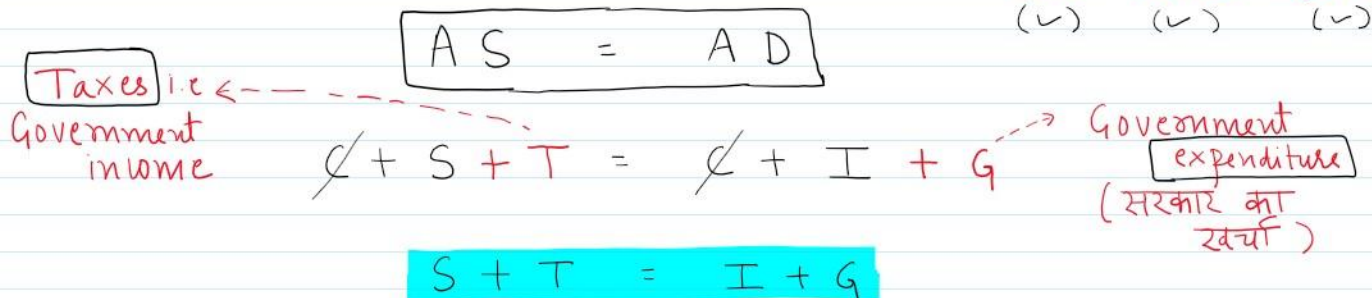 (✓) (✓) (✓)
AS = AD
Taxes i.e
Government
income
C + S + T = C + I + G
Government
expenditure
(सरकार का
खर्चा)
S + T = I + G